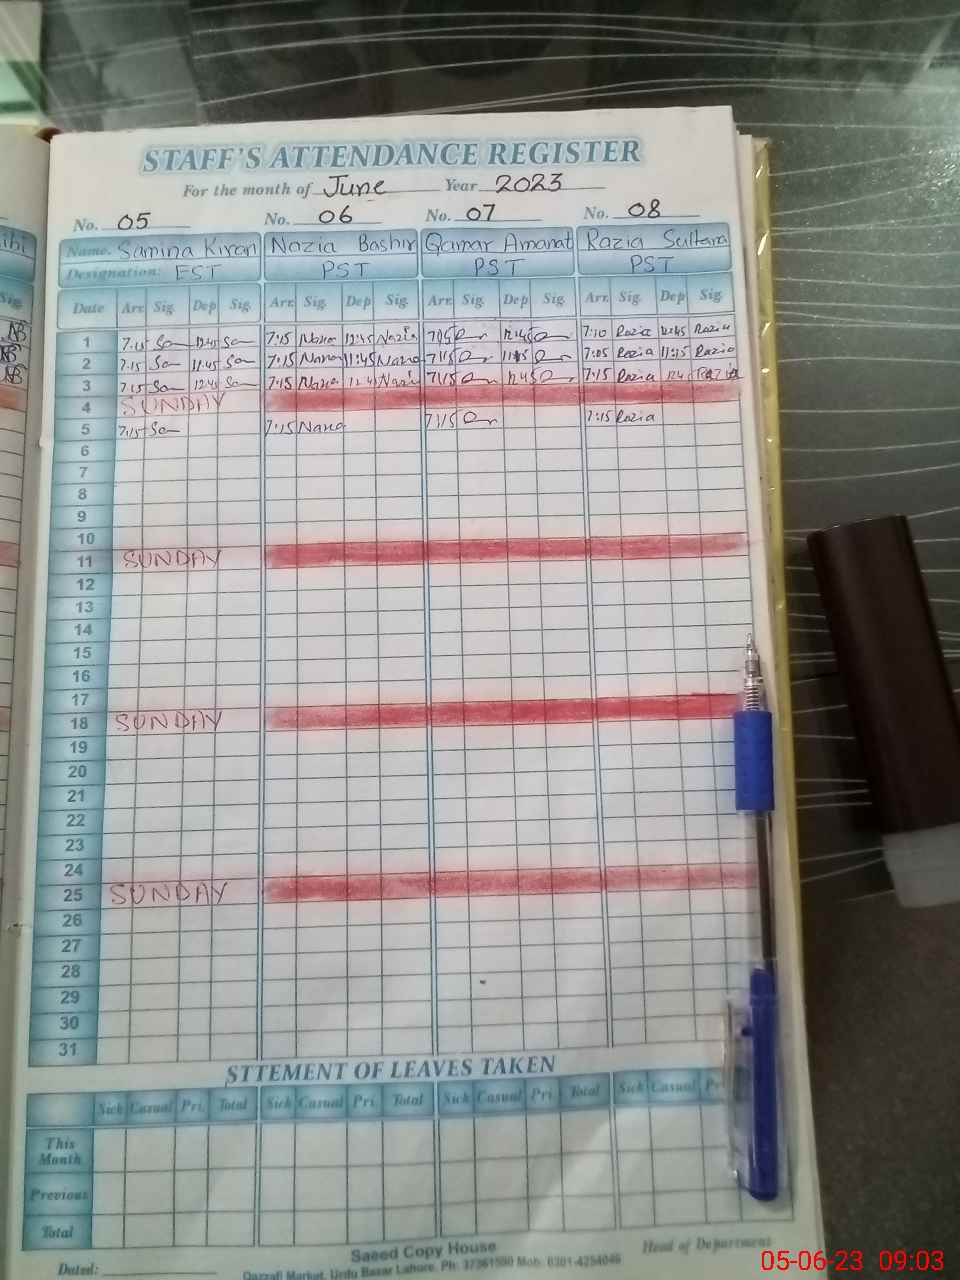 STAFF'S ATTENDANCE REGISTER
For the month of June Year 2023
No. 05 No. 06 No. 07 No. 08
Name. Samina Kiran Nazia Bashir Qamar Amanat Razia Sultana
Designation: EST PST PST PST
Date Arr. Sig. Dep Sig. Arr. Sig. Dep Sig. Arr. Sig. Dep Sig. Arr. Sig. Dep Sig.
1 7:15 12:45 7:15 Nazia 7:10 Razia 12:45 Razia
2 7:15 11:45 7:15 11:45 7:15 7:05 Razia 11:15 Razia
3 7:15 12:45 7:15 7:15 12:45 7:15 Razia Razia
4 SUNDAY
5 7:15 7:15 7:15 7:15 Razia
6
7
8
9
10
11 SUNDAY
12
13
14
15
16
17
18 SUNDAY
19
20
21
22
23
24
25 SUNDAY
26
27
28
29
30
31
STTEMENT OF LEAVES TAKEN
Sick Casual Pri. Total Sick Casual Pri. Total Sick Casual Pri. Total Sick Casual
This Month
Previous
Total
Dated: Saeed Copy House Head of Department
Qazzafi Market, Urdu Bazar Lahore. Ph: Mob:
05-06-23 09:03